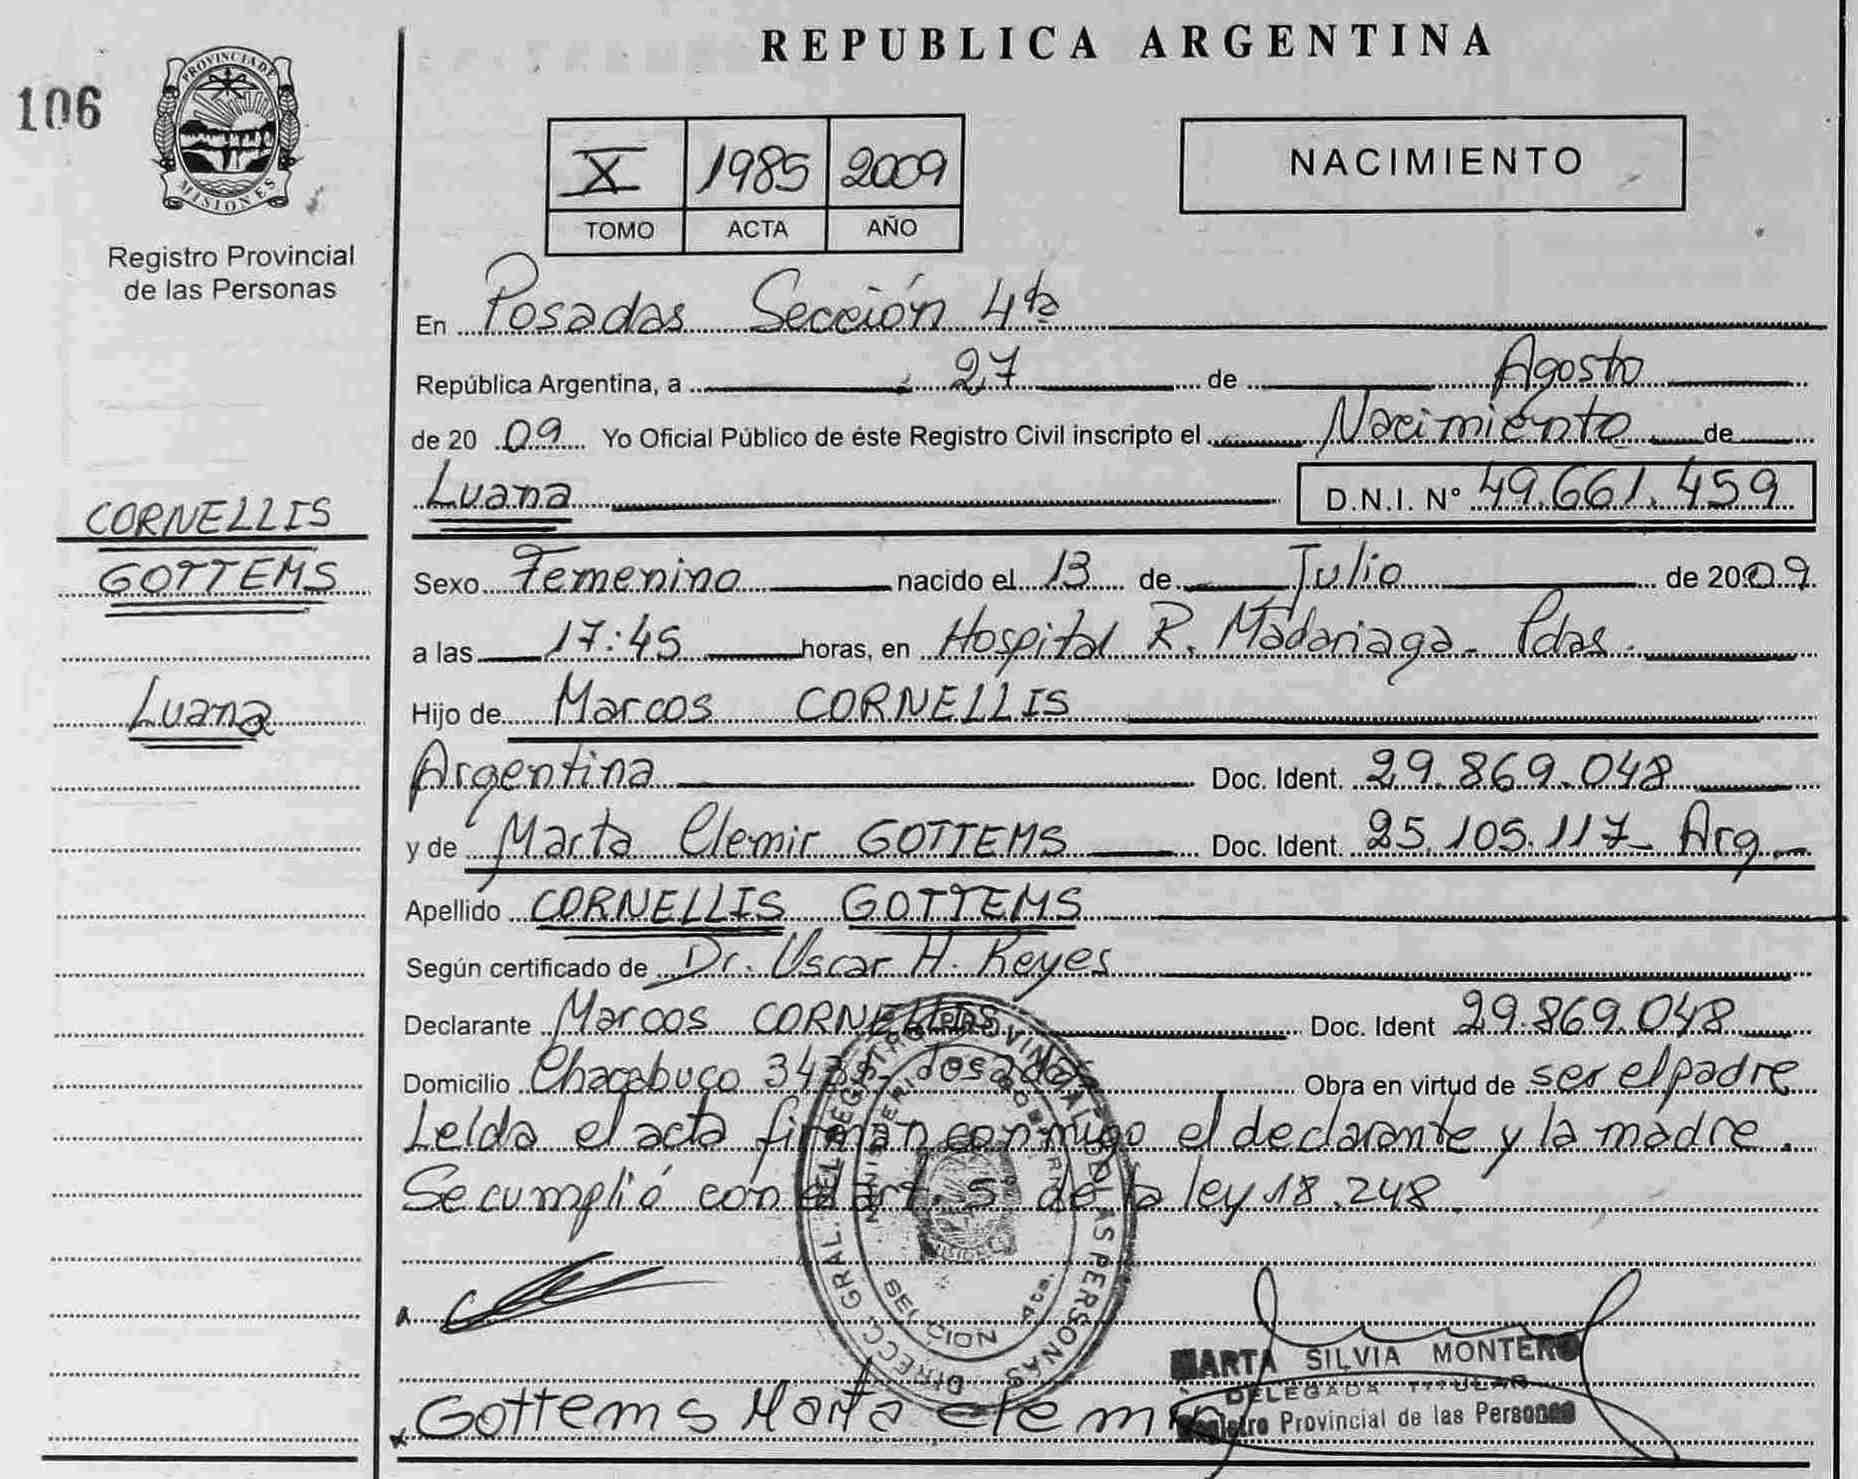 REPUBLICA ARGENTINA
106
PROVINCIA DE
MISIONES
Registro Provincial
de las Personas
X 1985 2009
TOMO ACTA AÑO
NACIMIENTO
En Posadas Sección 4ta
República Argentina, a 27 de Agosto
de 2009 Yo Oficial Público de éste Registro Civil inscripto el Nacimiento de
Luana D.N.I. N° 49.661.459
CORNELLIS
GOTTEMS
Luana
Sexo Femenino nacido el 13 de Julio de 2009
a las 17:45 horas, en Hospital R. Madariaga - Pdas.
Hijo de Marcos CORNELLIS
Argentina Doc. Ident. 29.869.048
y de Marta Clemir GOTTEMS Doc. Ident. 25.105.117- Arg.
Apellido CORNELLIS GOTTEMS
Según certificado de Dr. Oscar H. Reyes
Declarante Marcos CORNELLIS Doc. Ident 29.869.048
Domicilio Chacabuco Posadas Obra en virtud de ser el padre
Leída el acta firman conmigo el declarante y la madre.
Se cumplió con el art. 5 de la ley 18.248
DIRECC. GRAL. DEL REGISTRO PROVINCIAL DE LAS PERSONAS
SECCION 4ta.
MARTA SILVIA MONTERO
DELEGADA TITULAR
Registro Provincial de las Personas
Gottems Marta Clemir